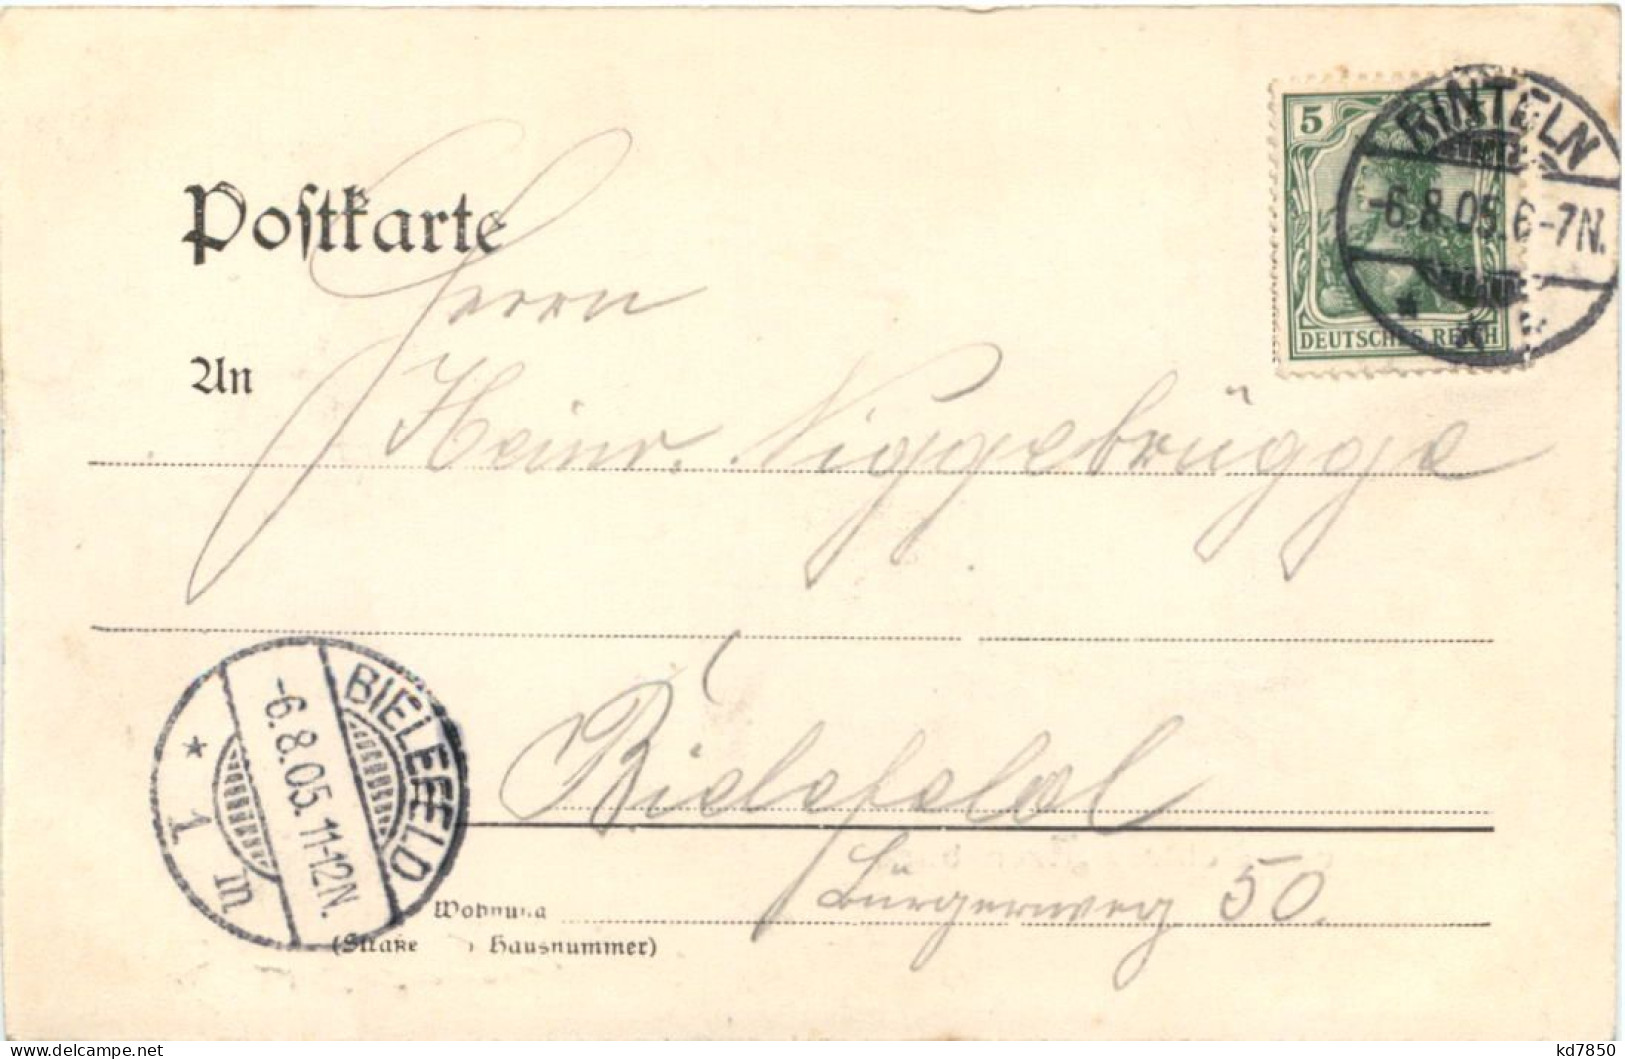 5
DEUTSCHES REICH
RINTELN
-6.8.05.6-7N.
Postkarte
Herrn
An
Heinr. Niggebrügge
BIELEFELD
-6.8.05.11-12N.
1 m
Bielefeld
Bürgerweg 50.
Wohnung
(Straße Hausnummer)
delcampe.net
kd7850